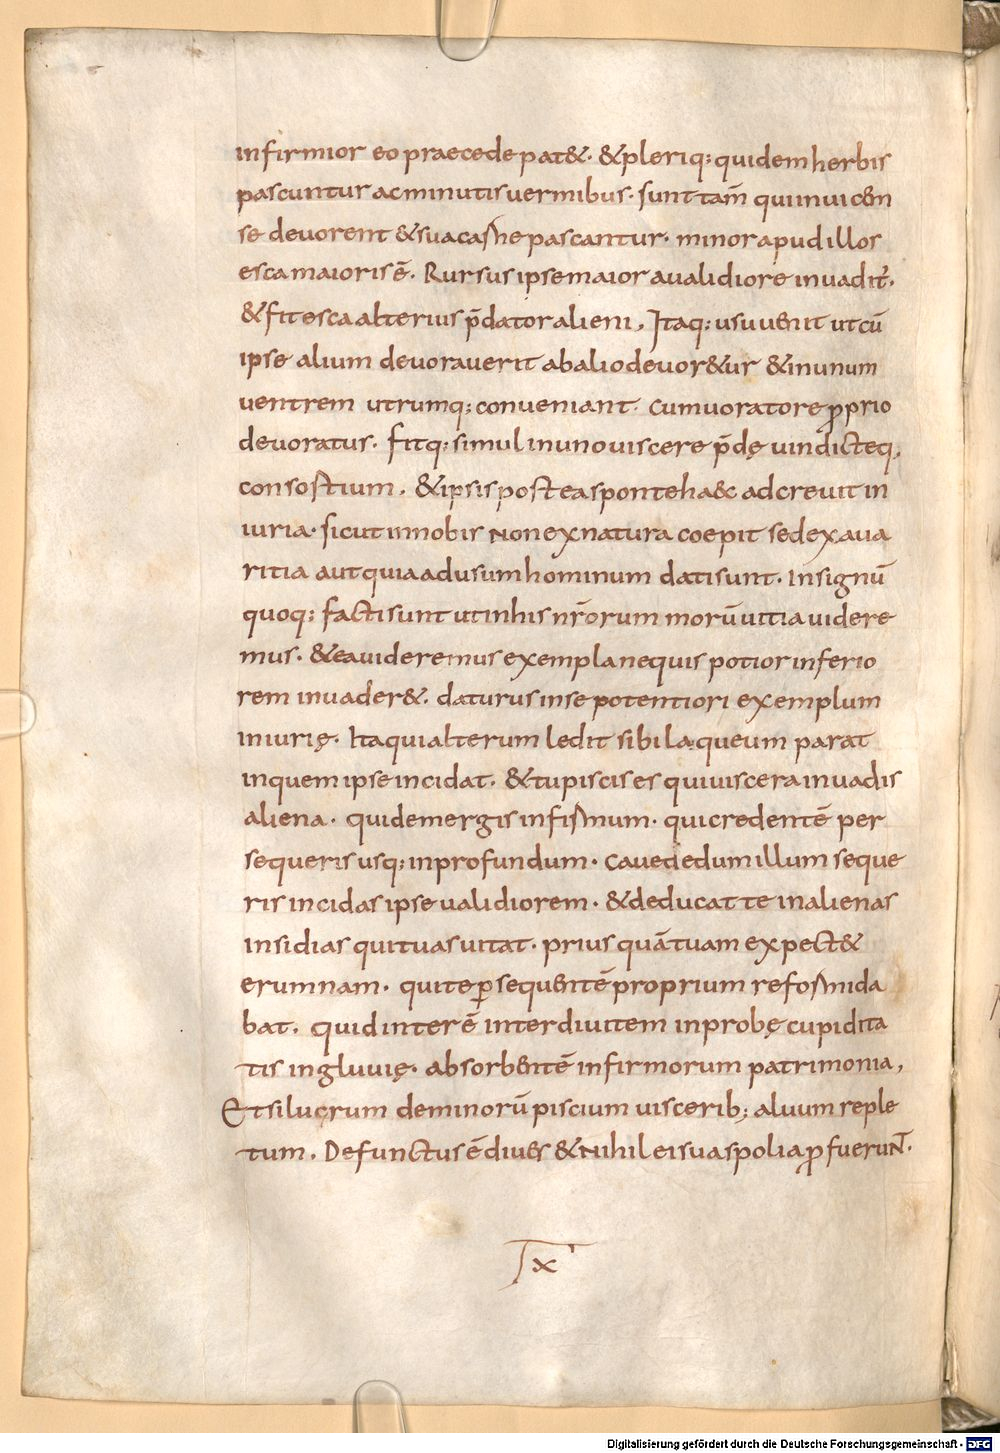 infirmior eo praecede pat&. &pleriq; quidem herbis
pascuntur ac minutis uermibus. sunt tam̄ qui inuicem
se deuorent & sua carne pascantur. minor apud illos
esca maioris ē. Rursus ipse maior aualidiore inuadit᷑.
& fit esca alterius p̄dator alieni. Itaq; usu uenit ut cū
ipse alium deuorauerit abalio deuor&ur & inunum
uentrem utrumq; conueniant. cum uoratore ꝓprio
deuoratus. fitq; simul in uno uiscere p̄dę uindicteq,
consortium. & ipsis postea sponte haec adcreuit in
iuria. sicut in nobis Non ex natura coepit sed ex aua
ritia aut quia ad usum hominum dati sunt. insignū
quoq; facti sunt ut in his nr̄orum morū uitia uidere
mus. & ea uideremus exempla nequis potior inferio
rem inuader&. daturus in se potentiori exemplum
iniurię. Itaqui alterum ledit sibi laqueum parat
inquem ipse incidat. & tu piscis es qui uiscera inuadis
aliena. qui demergis infirmum. qui credentē per
sequeris usq; in profundum. caue dedum illum seque
ris incidas ipse ualidiorem. & deducat te in alienas
insidias qui tuas uitat. prius quā tuam expect&
erumnam. qui te ꝑsequentē proprium reformida
bat. quid inter ē inter diuitem inprobę cupidita
tis ingluuię. absorbentē infirmorum patrimonia,
Et silucrum de minorū piscium uiscerib; aluum reple
tum. Defunctus ē diues & Nihil ei sua spolia ꝓfueruNT.
IX
Digitalisierung gefördert durch die Deutsche Forschungsgemeinschaft - DFG